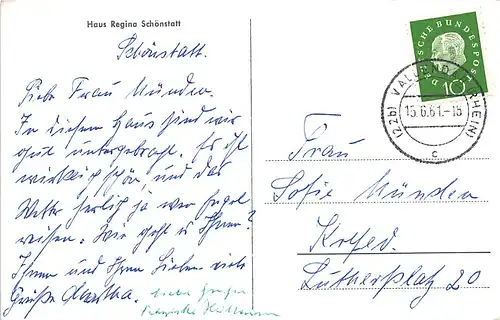 Haus Regina Schönstatt
Schönstatt.
Liebe Frau Münden.
In diesem Haus sind wir
gut untergebracht. Es ist
wirklich schön und das
Wetter herlich ja wen Engel
reisen. Wie geht es Ihnen?
Ihnen und Ihren Lieben viele
Grüße Martha.
Liebe Grüße
DEUTSCHE BUNDESPOST
10
(22b) VALLENDAR (RHEIN)
15.6.61.-15
c
Frau
Sofie Münden
Krefeld.
Lutherplatz 20